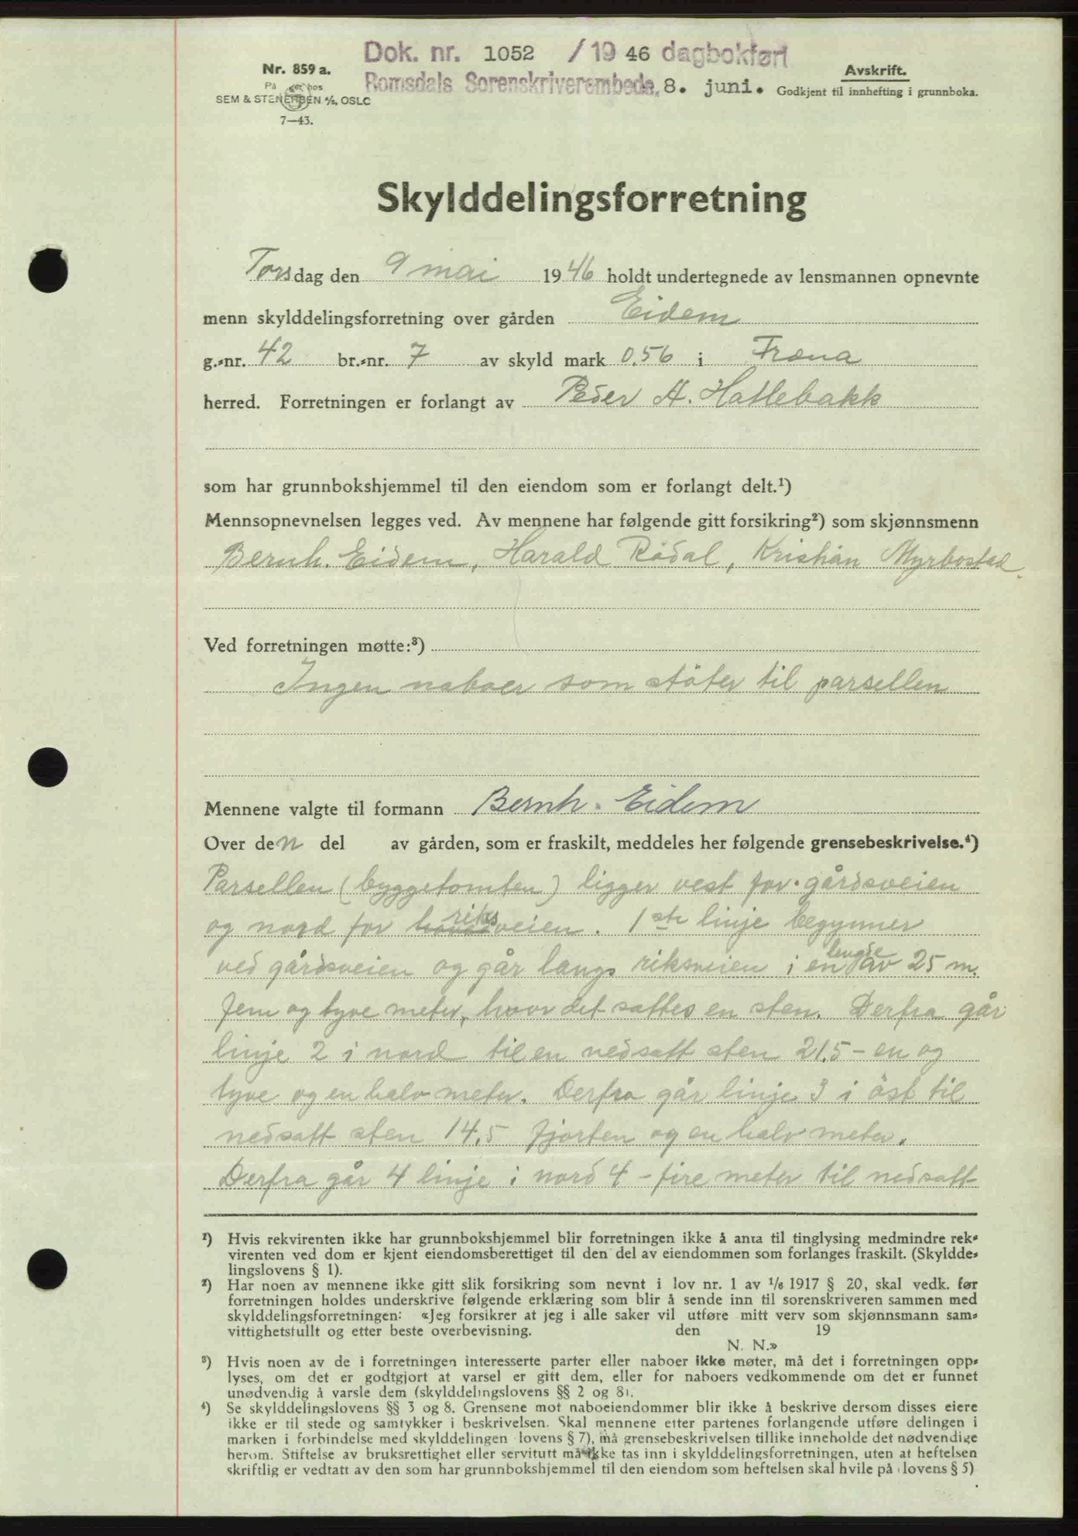 Dok. nr. 1052 / 19 46 dagbokført
Romsdals Sorenskriverembede, 8. juni.
Nr. 859 a.
SEM & STENERSEN A/S, OSLO
7—43.
Avskrift.
Godkjent til innhefting i grunnboka.
Skylddelingsforretning
Torsdag den 9 mai 1946 holdt undertegnede av lensmannen opnevnte
menn skylddelingsforretning over gården Eidem
g.-nr. 42 br.-nr. 7 av skyld mark 0.56 i Fræna
herred. Forretningen er forlangt av Peder A. Hatlebakk
som har grunnbokshjemmel til den eiendom som er forlangt delt.¹)
Mennsopnevnelsen legges ved. Av mennene har følgende gitt forsikring²) som skjønnsmenn
Bernh. Eidem, Harald Rödal, Kristian Myrbostad.
Ved forretningen møtte:³)
Ingen naboer som støter til parsellen
Mennene valgte til formann Bernh. Eidem
Over den del av gården, som er fraskilt, meddeles her følgende grensebeskrivelse.⁴)
Parsellen (byggetomten) ligger vest for gårdsveien
og nord for riksveien. 1ste linje begynner
ved gårdsveien og går langs riksveien i en lengde av 25 m.
fem og tyve meter, hvor det sattes en sten. Derfra går
linje 2 i nord til en nedsatt sten 21.5 – en og
tyve og en halv meter. Derfra går linje 3 i öst til
nedsatt sten 14.5 fjorten og en halv meter.
Derfra går 4 linje i nord 4 – fire meter til nedsatt
¹) Hvis rekvirenten ikke har grunnbokshjemmel blir forretningen ikke å anta til tinglysing medmindre rek-
virenten ved dom er kjent eiendomsberettiget til den del av eiendommen som forlanges fraskilt. (Skyldde-
lingslovens § 1).
²) Har noen av mennene ikke gitt slik forsikring som nevnt i lov nr. 1 av 1/6 1917 § 20, skal vedk. før
forretningen holdes underskrive følgende erklæring som blir å sende inn til sorenskriveren sammen med
skylddelingsforretningen: «Jeg forsikrer at jeg i alle saker vil utføre mitt verv som skjønnsmann sam-
vittighetsfullt og etter beste overbevisning. den 19
N. N.»
³) Hvis noen av de i forretningen interesserte parter eller naboer ikke møter, må det i forretningen opp-
lyses, om det er godtgjort at varsel er gitt dem, eller for naboers vedkommende om det er funnet
unødvendig å varsle dem (skylddelingslovens §§ 2 og 8).
⁴) Se skylddelingslovens §§ 3 og 8. Grensene mot naboeiendommer blir ikke å beskrive dersom disses eiere
ikke er til stede og samtykker i beskrivelsen. Skal mennene etter partenes forlangende utføre delingen i
marken i forbindelse med skylddelingen (lovens § 7), må grensebeskrivelsen tillike inneholde det nødvendige
herom. Stiftelse av bruksrettighet eller servitutt må ikke tas inn i skylddelingsforretningen, uten at heftelsen
skriftlig er vedtatt av den som har grunnbokshjemmel til den eiendom som heftelsen skal hvile på (lovens § 5)